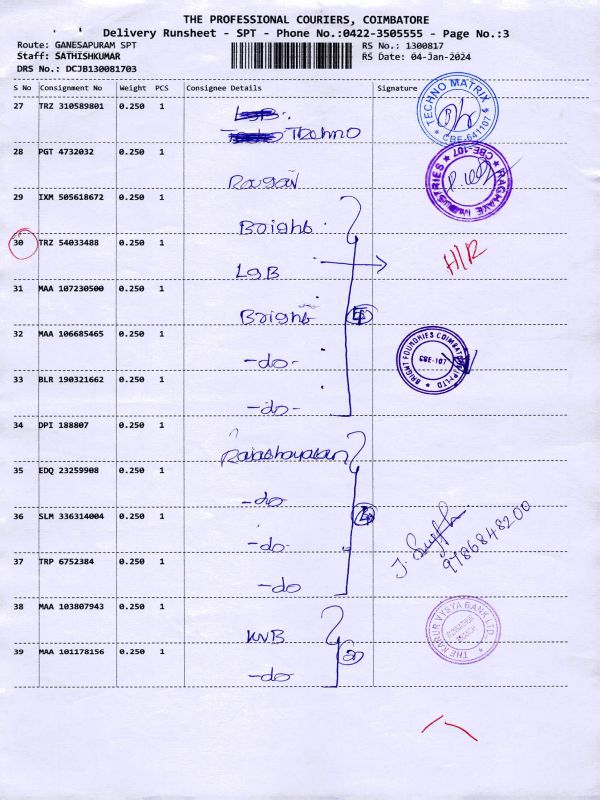 THE PROFESSIONAL COURIERS, COIMBATORE
Delivery Runsheet - SPT - Phone No.:0422-3505555 - Page No.:3
Route: GANESAPURAM SPT
RS No.: 1300817
Staff: SATHISHKUMAR
RS Date: 04-Jan-2024
DRS No.: DCJB130081703
S No Consignment No Weight PCS Consignee Details Signature
27 TRZ 310589801 0.250 1 Techno
TECHNO MATRIX
CBE-641107
28 PGT 4732032 0.250 1
RAGHAVE INDUSTRIES
CBE-107
29 IXM 505618672 0.250 1 Bright
30 TRZ 54033488 0.250 1 LGB H/R
31 MAA 107230500 0.250 1 Bright 4
32 MAA 106685465 0.250 1 -do-
BRIGHT FOUNDRIES COIMBATORE (P) LTD
CBE-107
33 BLR 190321662 0.250 1 -do-
34 DPI 188807 0.250 1
35 EDQ 23259908 0.250 1 -do
36 SLM 336314004 0.250 1 -do- 4
9786848200
37 TRP 6752384 0.250 1 -do
38 MAA 103807943 0.250 1 KVB
THE KARUR VYSYA BANK LTD.
39 MAA 101178156 0.250 1 -do 2